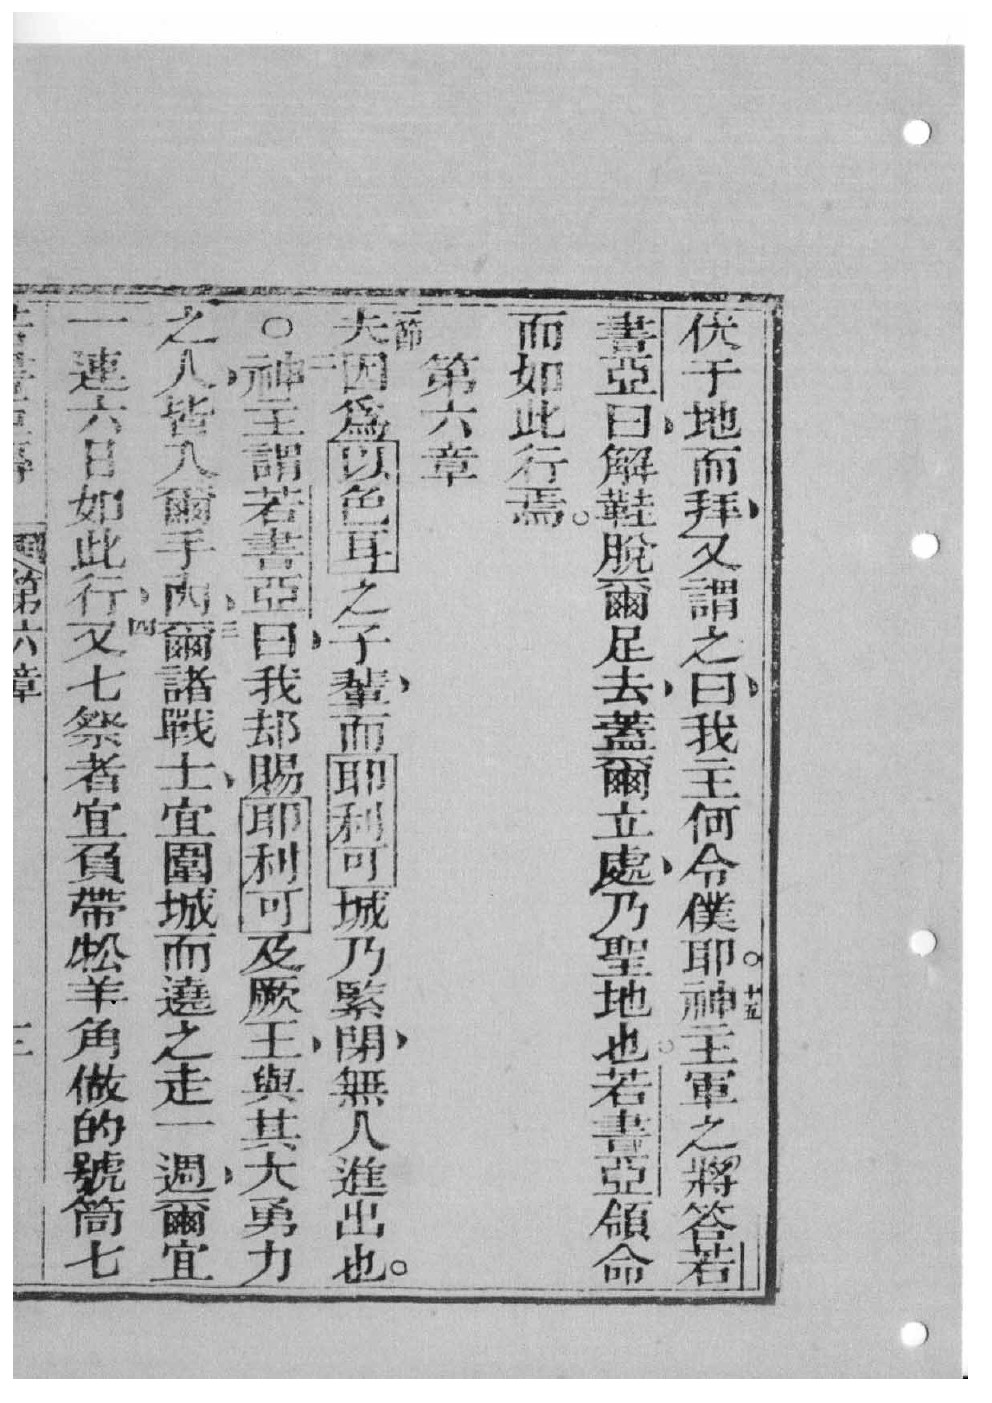 伏于地而拜又謂之曰我主何令僕耶。十五神主軍之將答若
書亞曰解鞋脫爾足去蓋爾立處乃聖地也。若書亞領命
而如此行焉。
第六章
一節夫因爲以色耳之子輩而耶利可城乃緊閉無人進出也。
○二神主謂若書亞曰我却賜耶利可及厥王與其大勇力
之人皆入爾手內三爾諸戰士宜圍城而遶之走一週爾宜
一連六日如此行四又七祭者宜負帶㸵羊角做的號筒七
第六章